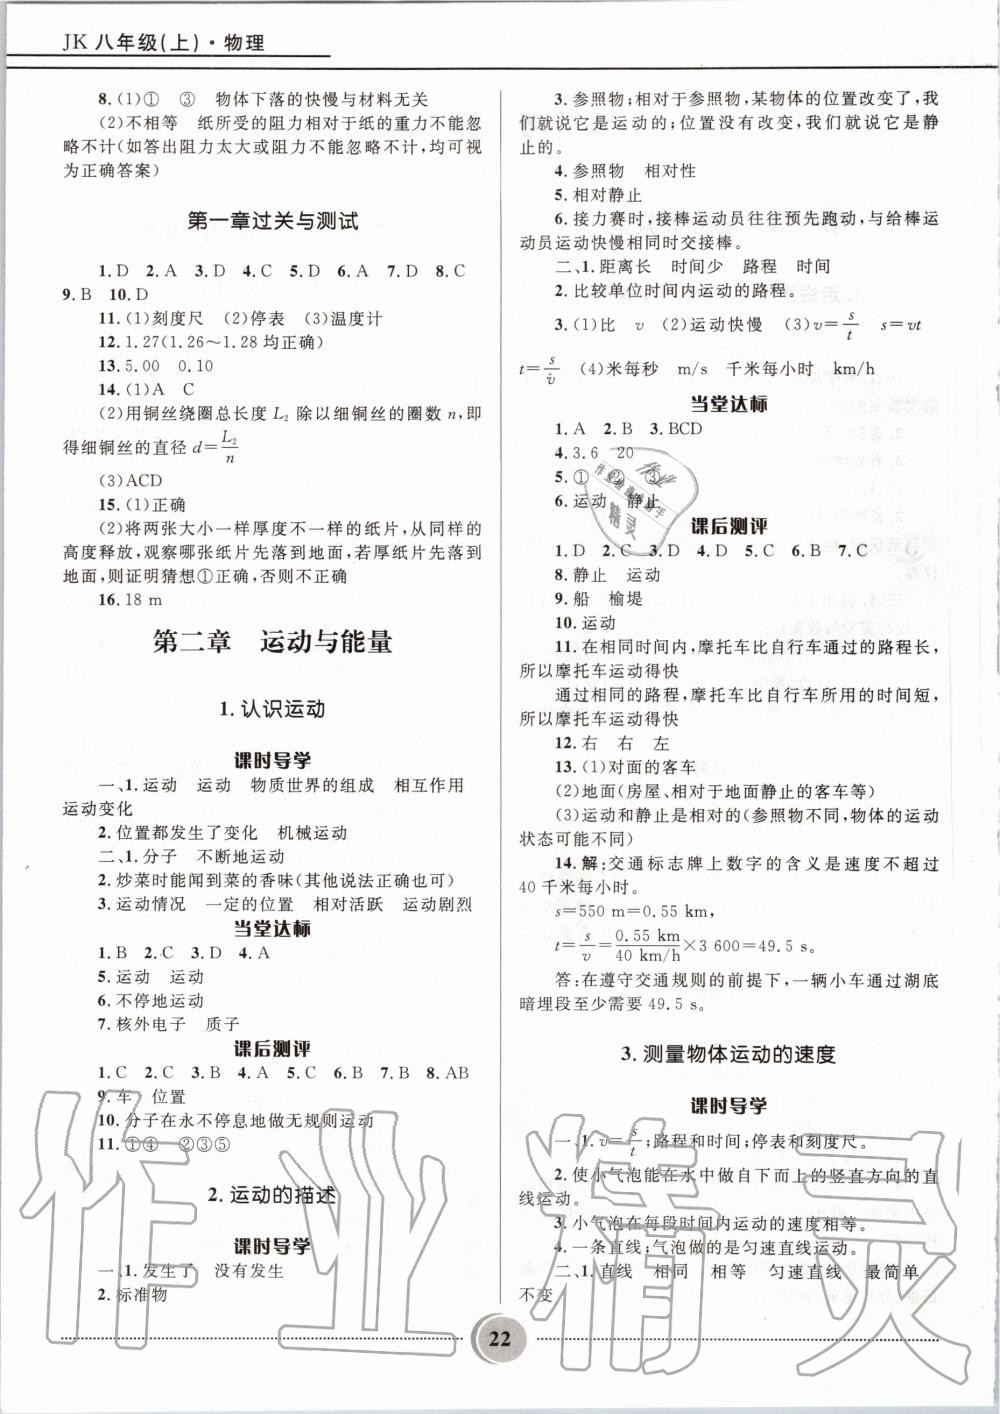 JK 八年级(上)·物理
8.(1)① ③ 物体下落的快慢与材料无关
(2)不相等 纸所受的阻力相对于纸的重力不能忽
略不计(如答出阻力太大或阻力不能忽略不计,均可视
为正确答案)
第一章过关与测试
1.D 2.A 3.D 4.C 5.D 6.A 7.D 8.C
9.B 10.D
11.(1)刻度尺 (2)停表 (3)温度计
12.1.27(1.26～1.28 均正确)
13.5.00 0.10
14.(1)A C
(2)用铜丝绕圈总长度 L₂ 除以细铜丝的圈数 n,即
得细铜丝的直径 d=L₂/n
(3)ACD
15.(1)正确
(2)将两张大小一样厚度不一样的纸片,从同样的
高度释放,观察哪张纸片先落到地面,若厚纸片先落到
地面,则证明猜想①正确,否则猜想①错误
16.18 m
第二章 运动与能量
1.认识运动
课时导学
一、1.运动 运动 物质世界的组成 相互作用
运动变化
2.位置都发生了变化 机械运动
二、1.分子 不断地运动
2.炒菜时能闻到菜的香味(其他说法正确也可)
3.运动情况 一定的位置 相对活跃 运动剧烈
当堂达标
1.B 2.C 3.D 4.A
5.运动 运动
6.不停地运动
7.核外电子 质子
课后测评
1.C 2.C 3.D 4.C 5.D 6.B 7.B 8.AB
9.车 位置
10.分子在永不停息地做无规则运动
11.①④ ②③⑤
2.运动的描述
课时导学
一、1.发生了 没有发生
2.标准物
3.参照物;相对于参照物,某物体的位置改变了,我
们就说它是运动的;位置没有改变,我们就说它是静
止的。
4.参照物 相对性
5.相对静止
6.接力赛时,接棒运动员往往预先跑动,与给棒运
动员运动快慢相同时交接棒。
二、1.距离长 时间少 路程 时间
2.比较单位时间内运动的路程。
3.(1)比 v (2)运动快慢 (3)v=s/t s=vt
t=s/v (4)米每秒 m/s 千米每小时 km/h
当堂达标
1.A 2.B 3.BCD
4.3.6 20
5.① ② ③
6.运动 静止
课后测评
1.D 2.C 3.D 4.D 5.C 6.B 7.C
8.静止 运动
9.船 榆堤
10.运动
11.在相同时间内,摩托车比自行车通过的路程长,
所以摩托车运动得快
通过相同的路程,摩托车比自行车所用的时间短,
所以摩托车运动得快
12.右 右 左
13.(1)对面的客车
(2)地面(房屋、相对于地面静止的客车等)
(3)运动和静止是相对的(参照物不同,物体的运动
状态可能不同)
14.解:交通标志牌上数字的含义是速度不超过
40 千米每小时。
s=550 m=0.55 km,
t=s/v=0.55 km/40 km/h×3 600=49.5 s。
答:在遵守交通规则的前提下,一辆小车通过湖底
暗埋段至少需要 49.5 s。
3.测量物体运动的速度
课时导学
一、1.v=s/t;路程和时间;停表和刻度尺。
2.使小气泡能在水中做自下而上的竖直方向的直
线运动。
3.小气泡在每段时间内运动的速度相等。
4.一条直线;气泡做的是匀速直线运动。
二、1.直线 相同 相等 匀速直线 最简单
不变
22
作业精灵